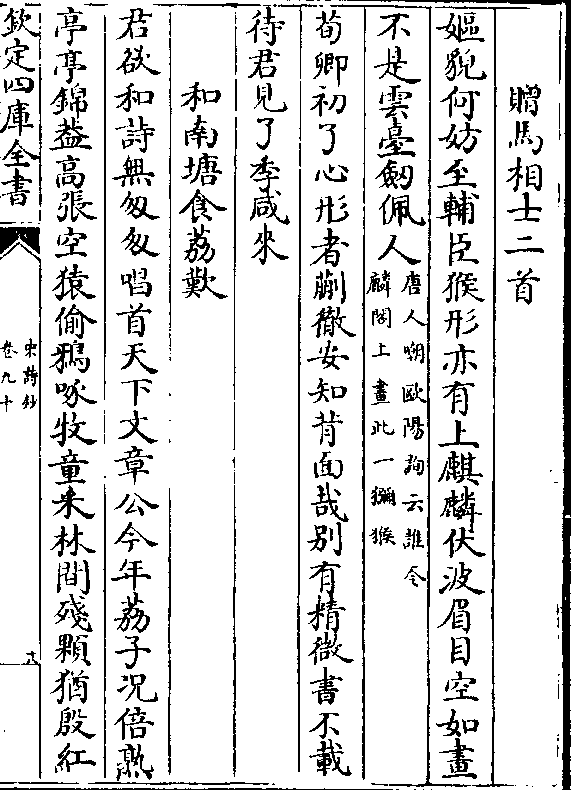 贈馬相士二首
嫗貌何妨至輔臣猴形亦有上麒麟伏波眉目空如畫
不是雲臺劒佩人唐人嘲歐陽詢云誰令
麟閣上畫此一獼猴
荀卿初了心形者蒯徹安知背面哉别有精微書不載
待君見了季咸來
和南塘食荔歎
君欲和詩無匆匆唱首天下文章公今年荔子况倍熟
亭亭錦葢高張空猿偷鴉啄牧童采林間殘顆猶殷紅
欽定四庫全書
宋詩鈔
卷九十
十八